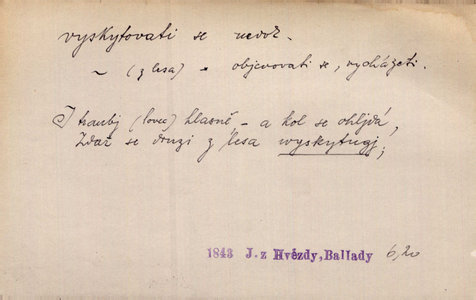 vyskytovati se nedok.
~ (z lesa) = objevovati se, vycházeti.
I traubj (lovec) hlasně – a kol se ohljdá,
Zdaž se druzi z lesa wyskytugj;
1843 J. z Hvězdy, Ballady 6,20